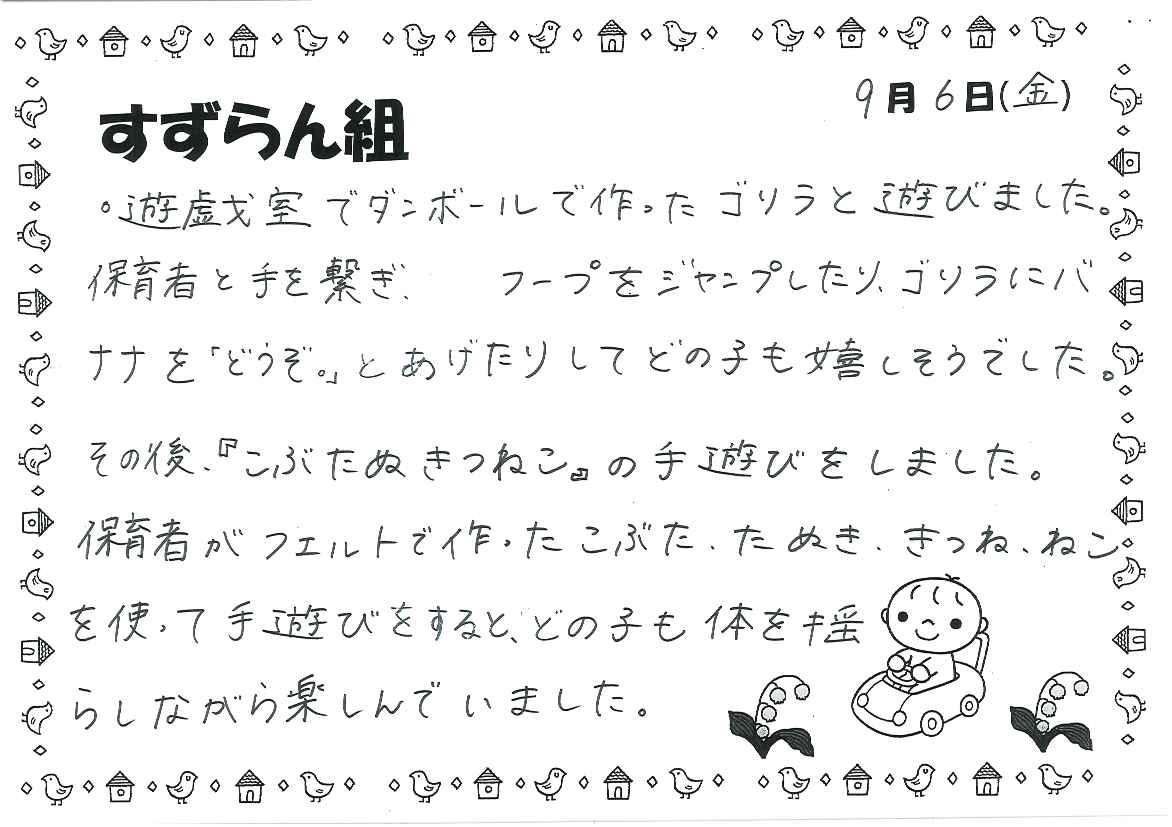 9月6日(金)
すずらん組
。遊戯室でダンボールで作ったゴリラと遊びました。
保育者と手を繋ぎ、 フープをジャンプしたり、ゴリラにバ
ナナを「どうぞ。」とあげたりしてどの子も嬉しそうでした。
その後、『こぶたぬきつねこ』の手遊びをしました。
保育者がフェルトで作ったこぶた、たぬき、きつね、ねこ
を使って手遊びをすると、どの子も体を揺
らしながら楽しんでいました。